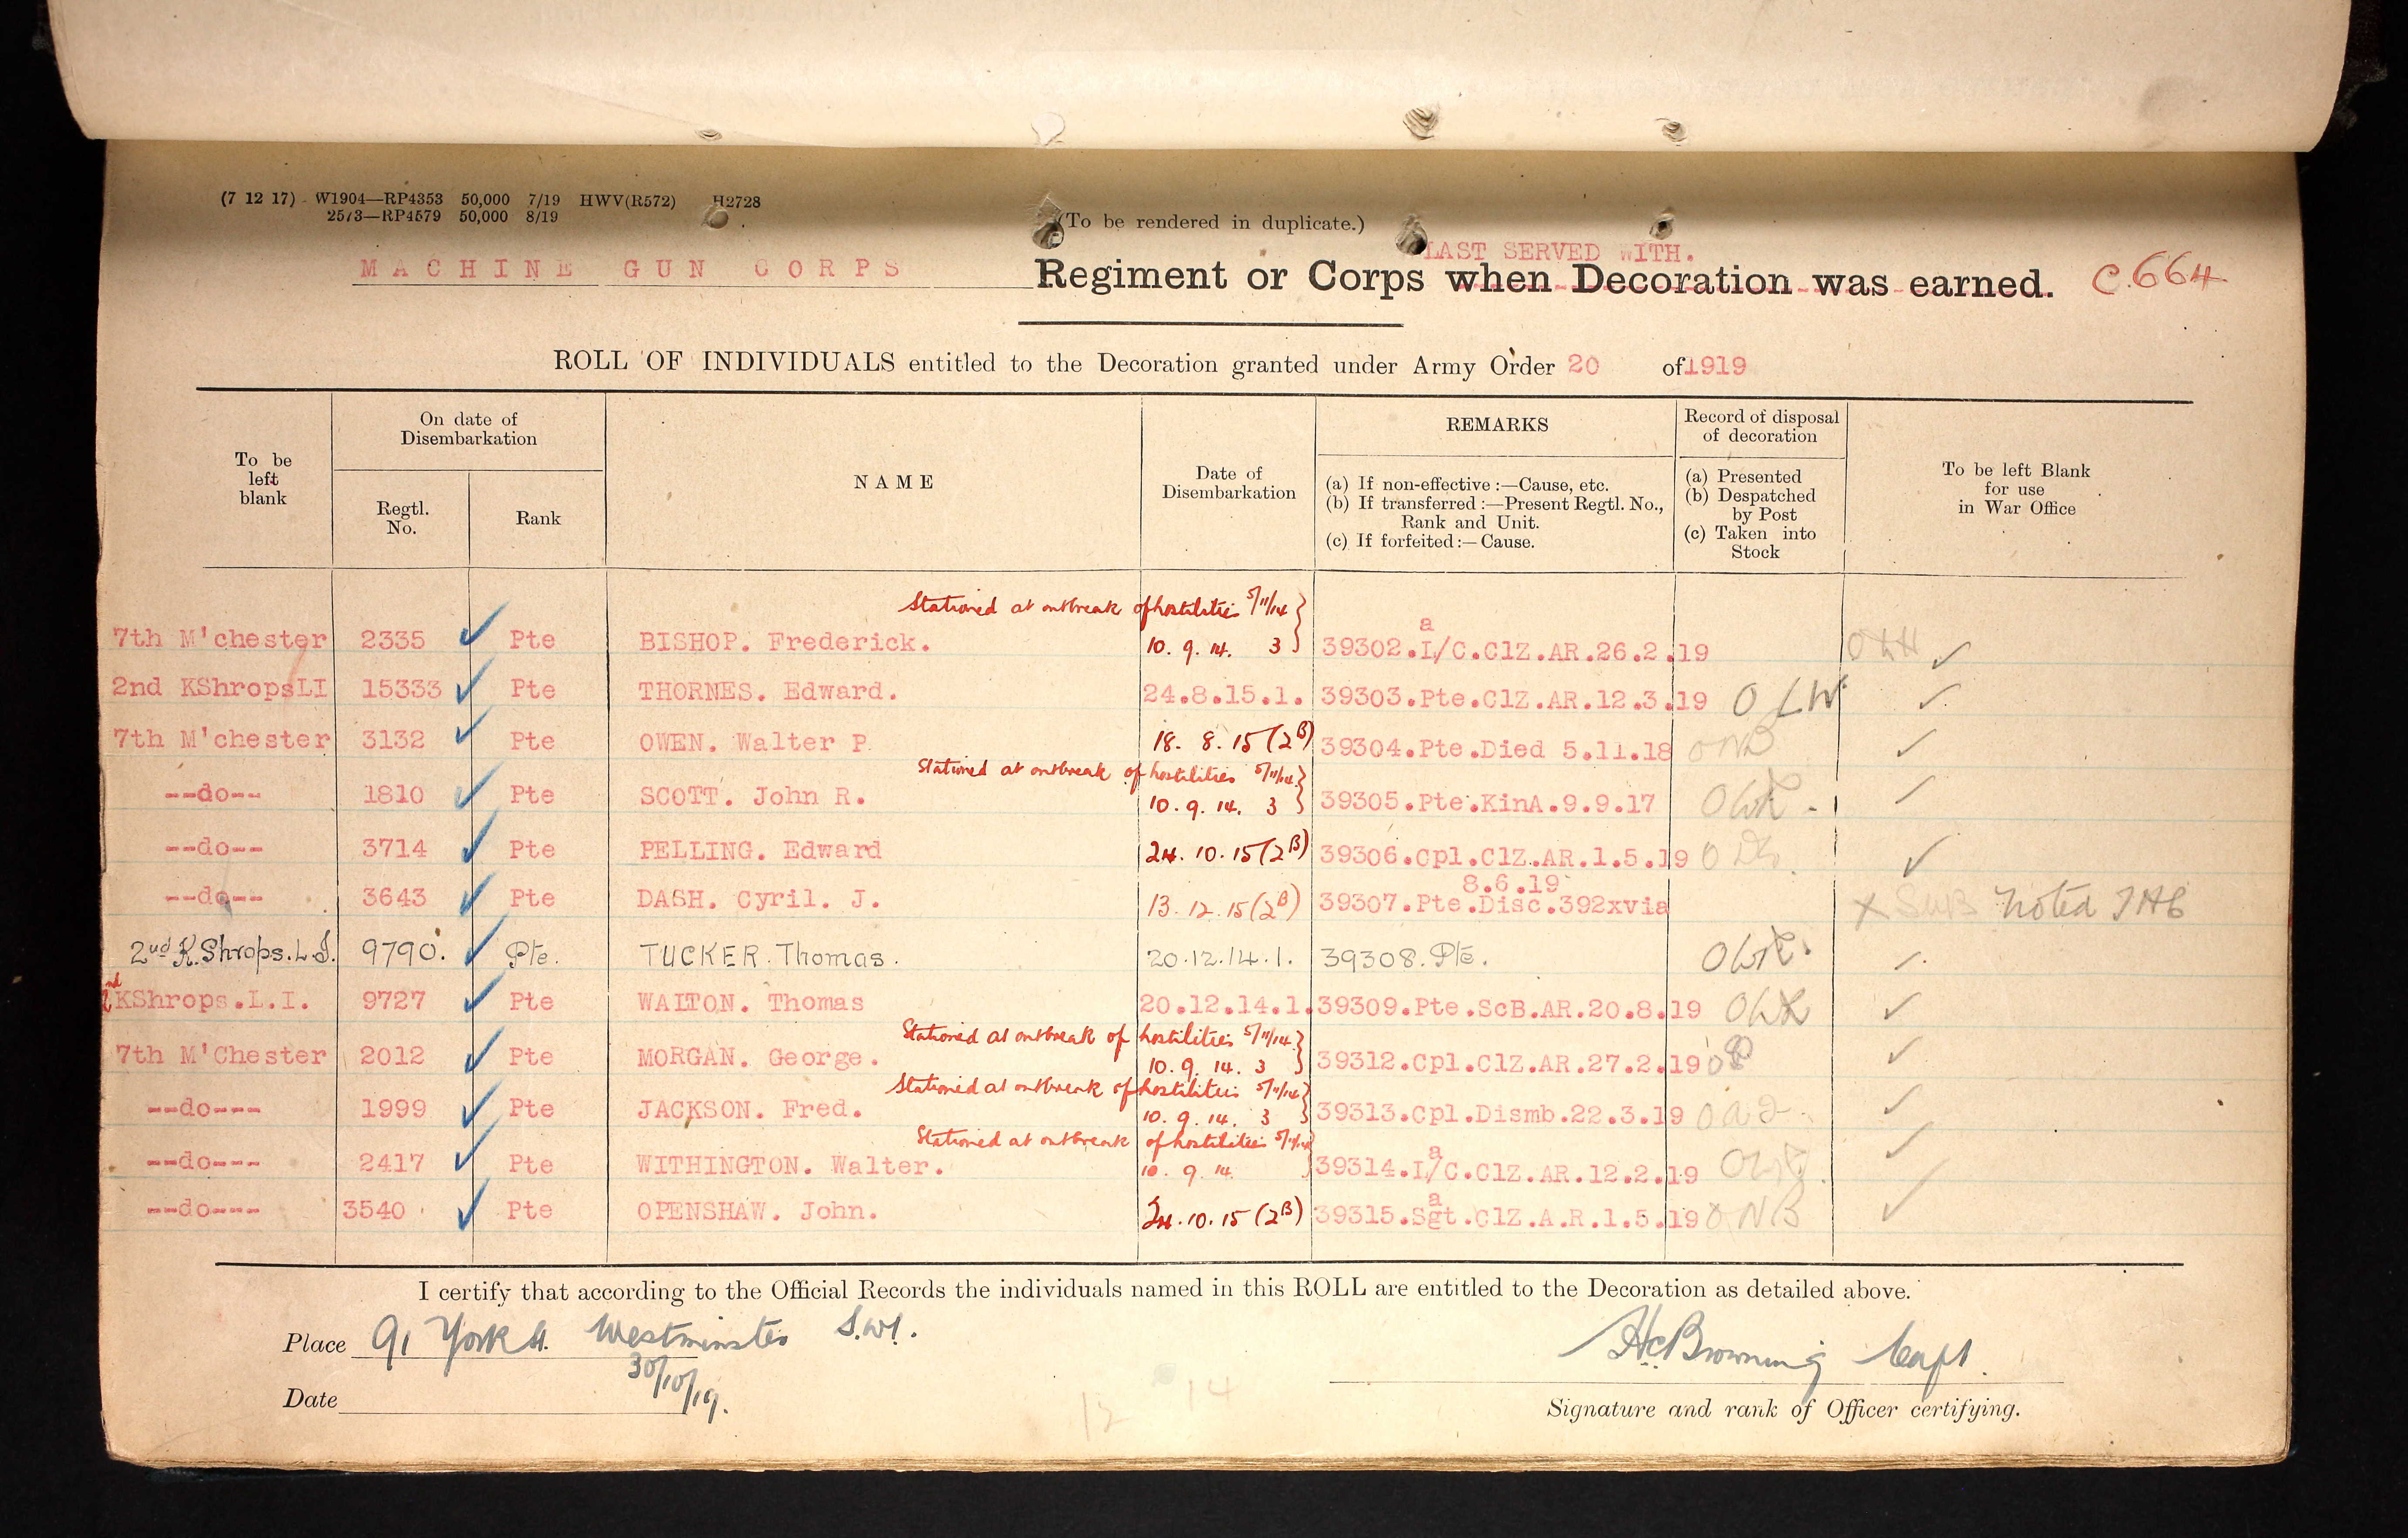 (7 12 17) W1904—RP4353 50,000 7/19 HWV(R572) H2728
2573—RP4579 50,000 8/19
(To be rendered in duplicate.)
LAST SERVED WITH.
MACHINE GUN CORPS Regiment or Corps when Decoration was earned. C.664
ROLL OF INDIVIDUALS entitled to the Decoration granted under Army Order 20 of 1919
To be left blank
On date of Disembarkation
Regtl. No.
Rank
NAME
Date of Disembarkation
REMARKS
(a) If non-effective :—Cause, etc.
(b) If transferred :—Present Regtl. No., Rank and Unit.
(c) If forfeited :—Cause.
Record of disposal of decoration
(a) Presented
(b) Despatched by Post
(c) Taken into Stock
To be left Blank for use in War Office
Stationed at outbreak of hostilities 5/11/14
7th M'chester 2335 Pte BISHOP. Frederick. 10. 9. 14. 3 39302.L/C.ClZ.AR.26.2.19
a
2nd KShropsLI 15333 Pte THORNES. Edward. 24.8.15.1. 39303.Pte.ClZ.AR.12.3.19 O LW
7th M'chester 3132 Pte OWEN. Walter P 18. 8. 15 (2B) 39304.Pte.Died 5.11.18
Stationed at outbreak of hostilities 5/11/14
--do-- 1810 Pte SCOTT. John R. 10. 9. 14. 3 39305.Pte.KinA.9.9.17
--do-- 3714 Pte PELLING. Edward 24. 10. 15 (2B) 39306.Cpl.ClZ.AR.1.5.19
8.6.19
--do-- 3643 Pte DASH. Cyril. J. 13. 12. 15 (2B) 39307.Pte.Disc.392xvia Noted
2nd K.Shrops.L.I. 9790. Pte. TUCKER. Thomas. 20.12.14.1. 39308. Pte.
2nd KShrops.L.I. 9727 Pte WALTON. Thomas 20.12.14.1. 39309.Pte.ScB.AR.20.8.19
Stationed at outbreak of hostilities 5/11/14.
7th M'Chester 2012 Pte MORGAN. George. 10. 9. 14. 3 39312.Cpl.ClZ.AR.27.2.19
Stationed at outbreak of hostilities 5/11/14
--do--- 1999 Pte JACKSON. Fred. 10. 9. 14. 3 39313.Cpl.Dismb.22.3.19
Stationed at outbreak of hostilities 5/11/14
--do--- 2417 Pte WITHINGTON. Walter. 10. 9. 14. 39314.L/C.ClZ.AR.12.2.19
a
--do--- 3540 Pte OPENSHAW. John. 24. 10. 15 (2B) 39315.Sgt.ClZ.A.R.1.5.19 O NB
a
I certify that according to the Official Records the individuals named in this ROLL are entitled to the Decoration as detailed above.
Place 91 York St. Westminster S.W1.
Date 30/10/19.
HC Browning Capt.
Signature and rank of Officer certifying.
12 14